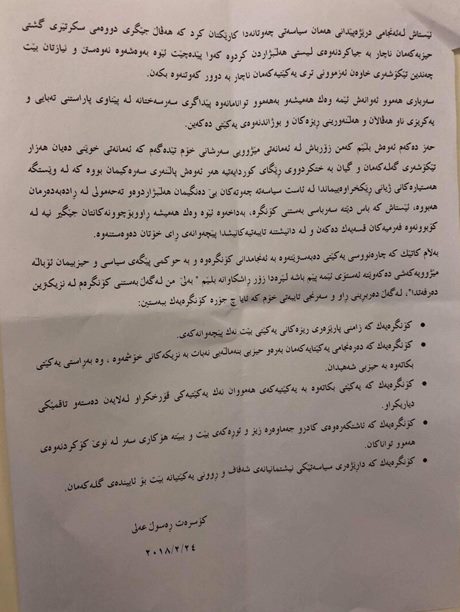 ئێستاش لـەئەنجامی درێژەپێدانی هەمان سیاسەتی چەوتانەدا کارێکتان کرد کە هەڤاڵ جێگری دووەمی سکرتێری گشتی
حیزبەکەمان ناچار بە جیاکردنەوەی لیستی هەڵبژاردن کردوە کەوا پێدەچێت ئێوە بەوەشەوە نەوەستن و نیازتان بێت
چەندین تێکۆشەری خاوەن ئەزموونی تری یەکێتیەکەمان ناچار بە دوور کەوتنەوە بکەن.
سەرباری هەموو ئەوانەش ئێمە وەك هەمیشەو بەهەموو توانامانەوە پێداگری سەرسەختانە لـە پێناوی پاراستنی تەبایی و
یەکڕیزی ناو هەڤاڵان و هەڵنەوەرینی ڕیزەکان و بوژاندنەوەی یەکێتی دەکەین.
حەز دەکەم ئەوەش بڵێم کەمن زۆرباش لـە ئەمانەتی مێژوویی سەرشانی خۆم تێدەگەم کە ئەمانەتی خوێنی دەیان هەزار
تێکۆشەری گەلـەکەمان و گیان بە ختکردووی ڕێگای کوردایەتیە هەر ئەوەش پاڵنەری سەرەکیمان بووە کە لـە وێستگە
هەستیارەکانی ژیانی ڕێکخراوەییماندا لـە ئاست سیاسەتە چەوتەکان بێ دەنگیمان هەڵبژاردوەو تەحەمولی لـە ڕادەبەدەرمان
هەبووە، ئێستاش کە باس دێتە سەرباسی بەستنی کۆنگرە، بەداخەوە ئێوە وەك هەمیشە ڕاوبۆچوونەکانتان جێگیر نیە لـە
کۆبوونەوە فەرمیەکان قسەیەك دەکەن و لـە دانیشتنە تایبەتیەکانیشدا پێچەوانەی ڕای خۆتان دەوەستنەوە.
بەلام کاتێك کە چارەنووسی یەکێتی دەبەسترێتەوە بە ئەنجامدانی کۆنگرەوە و بە حوکمی پێگەی سیاسی و حیزبیمان ئۆباڵـە
مێژووییەکەشی دەکەوێتە ئەستۆی ئێمە پێم باشە لێرەدا زۆر ڕاشکاوانە بڵێم " بەلێ من لـەگەڵ بەستنی کۆنگرەم لـە نزیکترین
دەرفەتدا"، لـەگەڵ دەربڕینی ڕاو و سەرنجی تایبەتی خۆم کە ئایا چ جۆرە کۆنگرەیەك ببەستین:
• کۆنگرەیەك کە زامنی پارێزەری ڕیزەکانی یەکێتی بێت نەك پێچەوانەکەی.
• کۆنگرەیەك کە دەرەنجامی یەکێتیایەکەمان بەرەو حیزبی بنەماڵـەیی نەبات بە نزیکەکانی خۆشەوە ، وە بەڕاستی یەکێتی
بکاتەوە بە حیزبی شەهیدان.
• کۆنگرەیەك کە یەکێتی بکاتەوە بە یەکێتیەکەی هەمووان نەك یەکێتیەکی قۆرخکراو لـەلایەن دەستەو تاقمێکی
دیاریکراو.
• کۆنگرەیەك کە ئاشتکەرەوەی کادرو جەماوەرە زیز و تورەکەی بێت و ببێتە هۆکاری سەر لـە نوێ کۆکردنەوەی
هەموو تواناکان.
• کۆنگرەیەك کە داڕێژەری سیاسەتێکی نیشتمانیانەی شەفاف و ڕوونی یەکێتیانە بێت بۆ ئاییندەی گەلـەکەمان.
کۆسرەت ڕەسوڵ عەلی
٢٠١٨/٢/٢٤